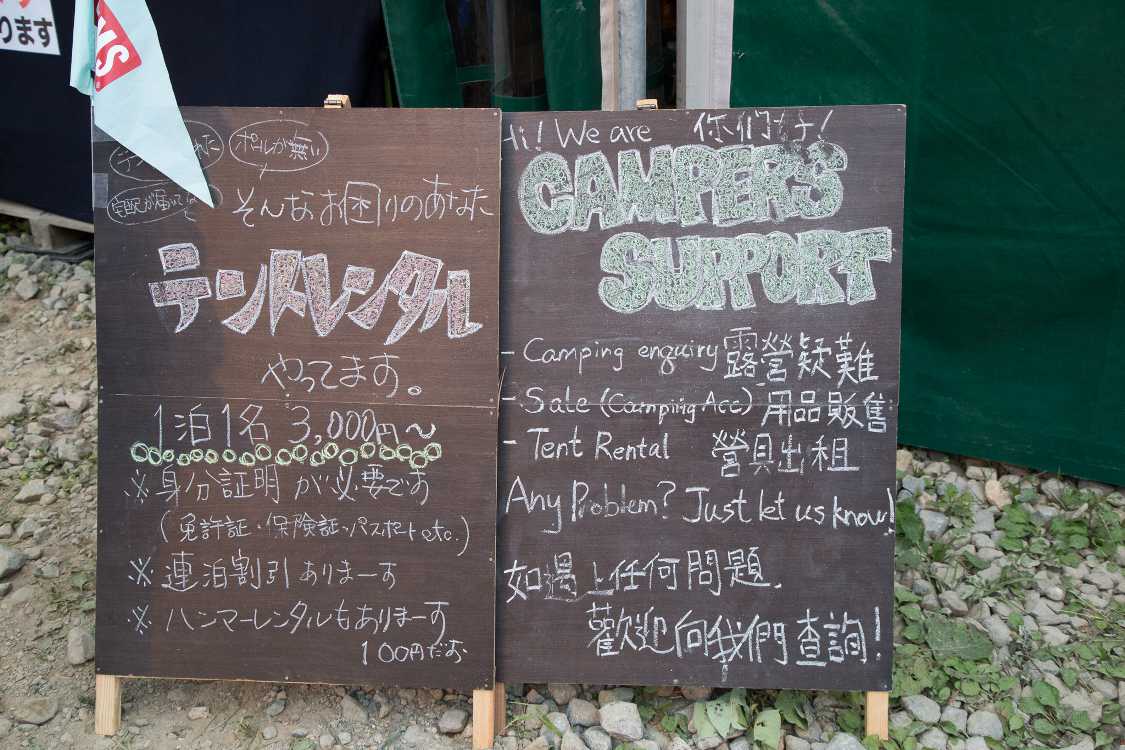 ります
MS
ポールが無い
宅配が届いて
そんなお困りのあなた
テントレンタル
やってます。
1泊1名 3,000円～
※身分証明が必要です
(免許証・保険証・パスポートetc.)
※連泊割引ありまーす
※ハンマーレンタルもあります
100円だお
Hi! We are 你们好!
CAMPERS
SUPPORT
- Camping enquiry 露營疑難
- Sale (Camping Acc) 用品販售
- Tent Rental 營具出租
Any Problem? Just let us know!
如遇上任何問題.
歡迎向我們查詢!